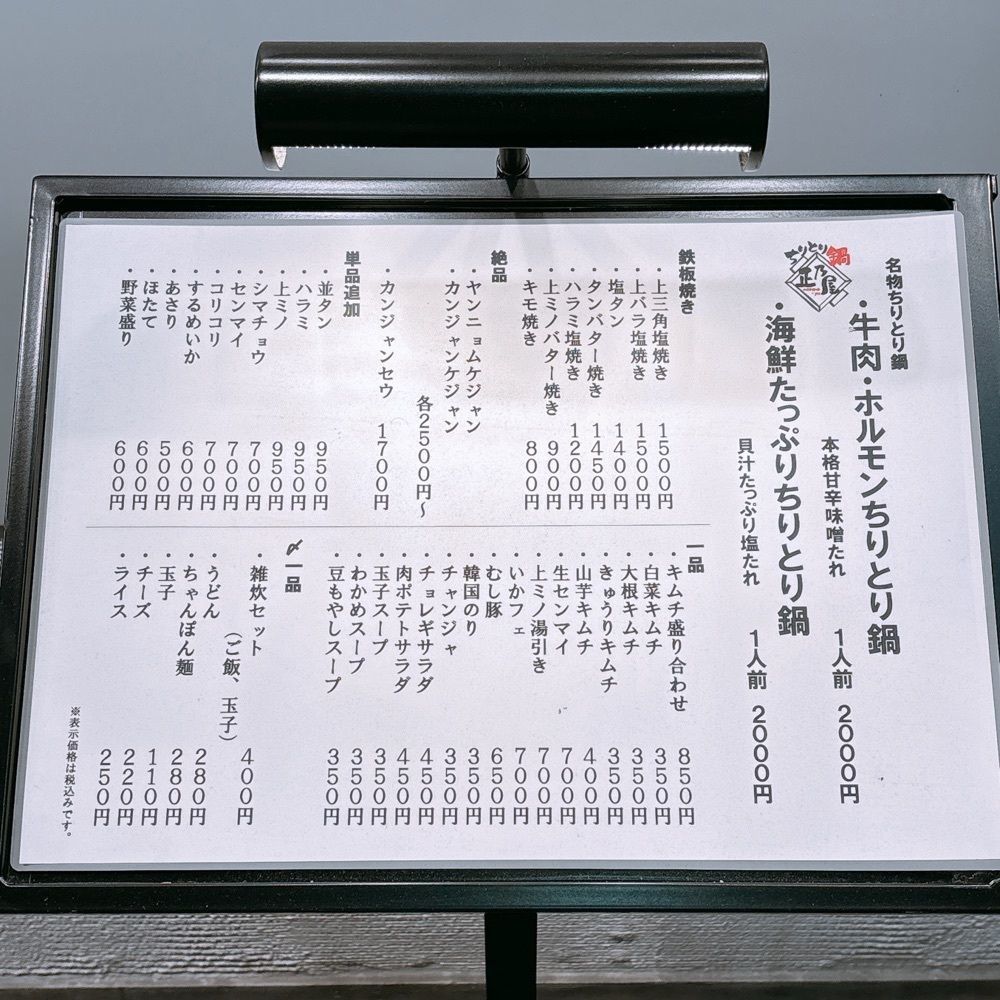 ちりとり鍋
正乃屋
名物ちりとり鍋
・牛肉・ホルモンちりとり鍋 1人前 2000円
本格甘辛味噌たれ
・海鮮たっぷりちりとり鍋 1人前 2000円
貝汁たっぷり塩たれ
鉄板焼き
・上三角塩焼き 1500円
・上バラ塩焼き 1500円
・塩タン 1400円
・タンバター焼き 1450円
・ハラミ塩焼き 1200円
・上ミノバター焼き 900円
・キモ焼き 800円
絶品
・ヤンニョムケジャン
・カンジャンケジャン
各2500円～
・カンジャンセウ 1700円
単品追加
・並タン 950円
・ハラミ 950円
・上ミノ 950円
・シマチョウ 700円
・センマイ 700円
・コリコリ 700円
・するめいか 600円
・あさり 500円
・ほたて 600円
・野菜盛り 600円
一品
・キムチ盛り合わせ 850円
・白菜キムチ 350円
・大根キムチ 350円
・きゅうりキムチ 350円
・山芋キムチ 400円
・生センマイ 700円
・上ミノ湯引き 700円
・いかフェ 700円
・むし豚 650円
・韓国のり 350円
・チャンジャ 350円
・チョレギサラダ 450円
・肉ポテトサラダ 450円
・玉子スープ 350円
・わかめスープ 350円
・豆もやしスープ 350円
〆一品
・雑炊セット 400円
（ご飯、玉子）
・うどん 280円
・ちゃんぽん麺 280円
・玉子 110円
・チーズ 220円
・ライス 250円
※表示価格は税込みです。